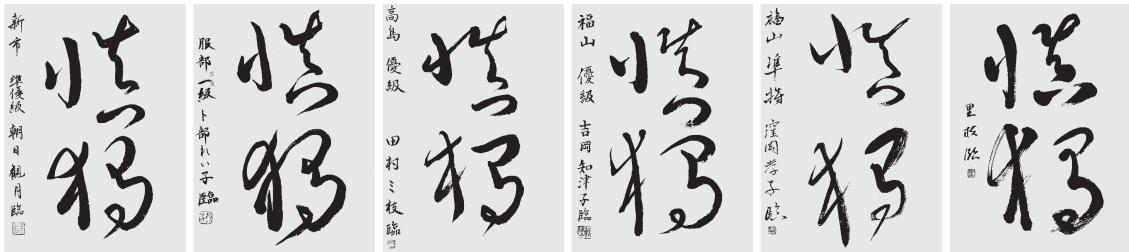 慎獨
新市 準優級 朝日観月臨
慎獨
服部 一級 卜部れい子臨
慎獨
高島 優級 田村ミ枝臨
慎獨
福山 優級 吉岡知津子臨
慎獨
福山 準特 窪岡孝子臨
慎獨
里枝臨